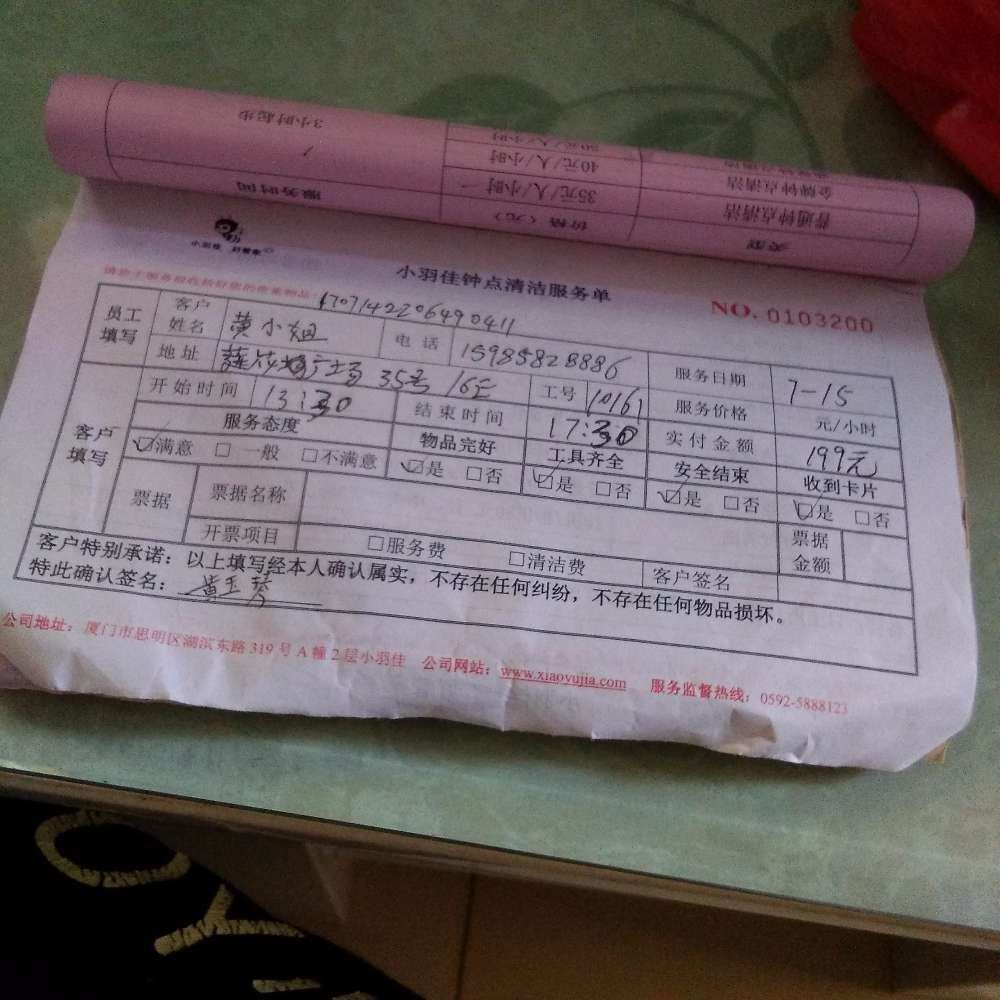 3小时起步
30元/人/小时
/ 40元/人/小时 金牌钟点清洁
35元/人/小时 普通钟点清洁
服务时间 价格（元） 类型
小羽佳 好管家
小羽佳钟点清洁服务单
NO. 0103200
1707142206490411
员工填写 客户姓名 黄小姐 电话 15985828886 服务日期 7-15
地址 35号 16E 工号 10161 服务价格 元/小时
客户填写 开始时间 13:30 结束时间 17:30 实付金额 199元
服务态度 物品完好 工具齐全 安全结束 收到卡片
☑满意 □一般 □不满意 ☑是 □否 ☑是 □否 ☑是 □否 ☑是 □否
票据 票据名称 票据金额
开票项目 □服务费 □清洁费 客户签名
客户特别承诺：以上填写经本人确认属实，不存在任何纠纷，不存在任何物品损坏。
特此确认签名：黄玉琴
公司地址：厦门市思明区湖滨东路319号A幢2层小羽佳 公司网站：www.xiaoyujia.com 服务监督热线：0592-5888123
OY